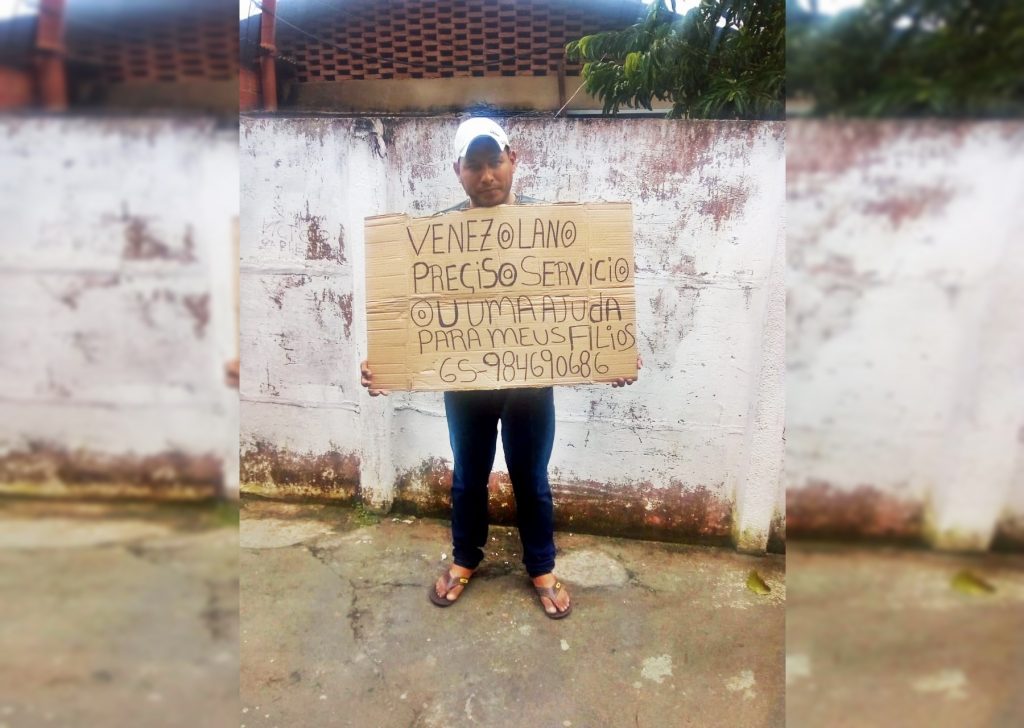 VENEZOLANO
PREÇISO SERVICIO
OU UMA AJUdA
PARA MEUS FILIOS
65-984690686